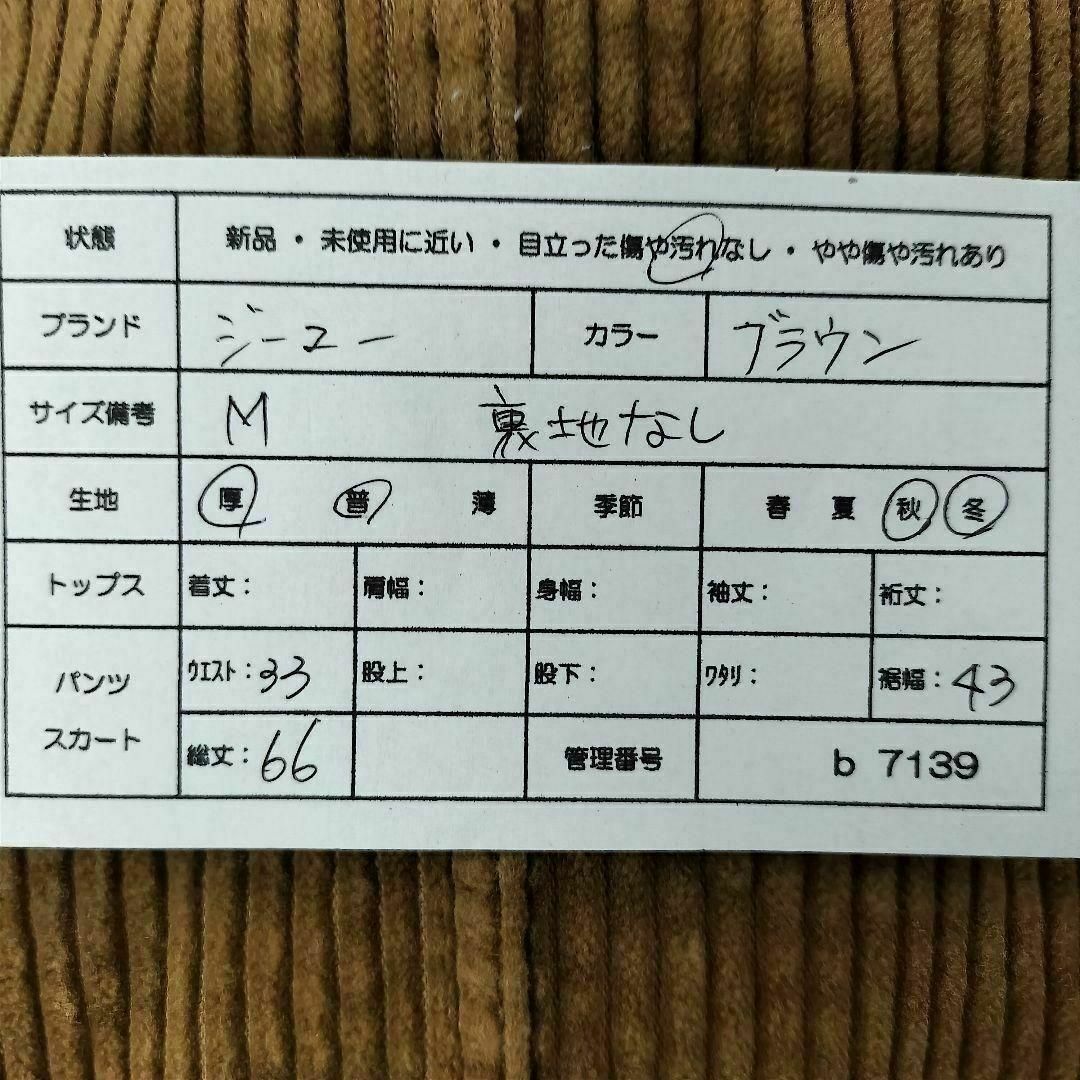 状態 新品 ・ 未使用に近い ・ 目立った傷や汚れなし ・ やや傷や汚れあり
ブランド ジーユー カラー ブラウン
サイズ備考 M 裏地なし
生地 厚 普 薄 季節 春 夏 秋 冬
トップス 着丈： 肩幅： 身幅： 袖丈： 裄丈：
パンツ ウエスト：33 股上： 股下： ワタリ： 裾幅：43
スカート 総丈：66 管理番号 b 7139